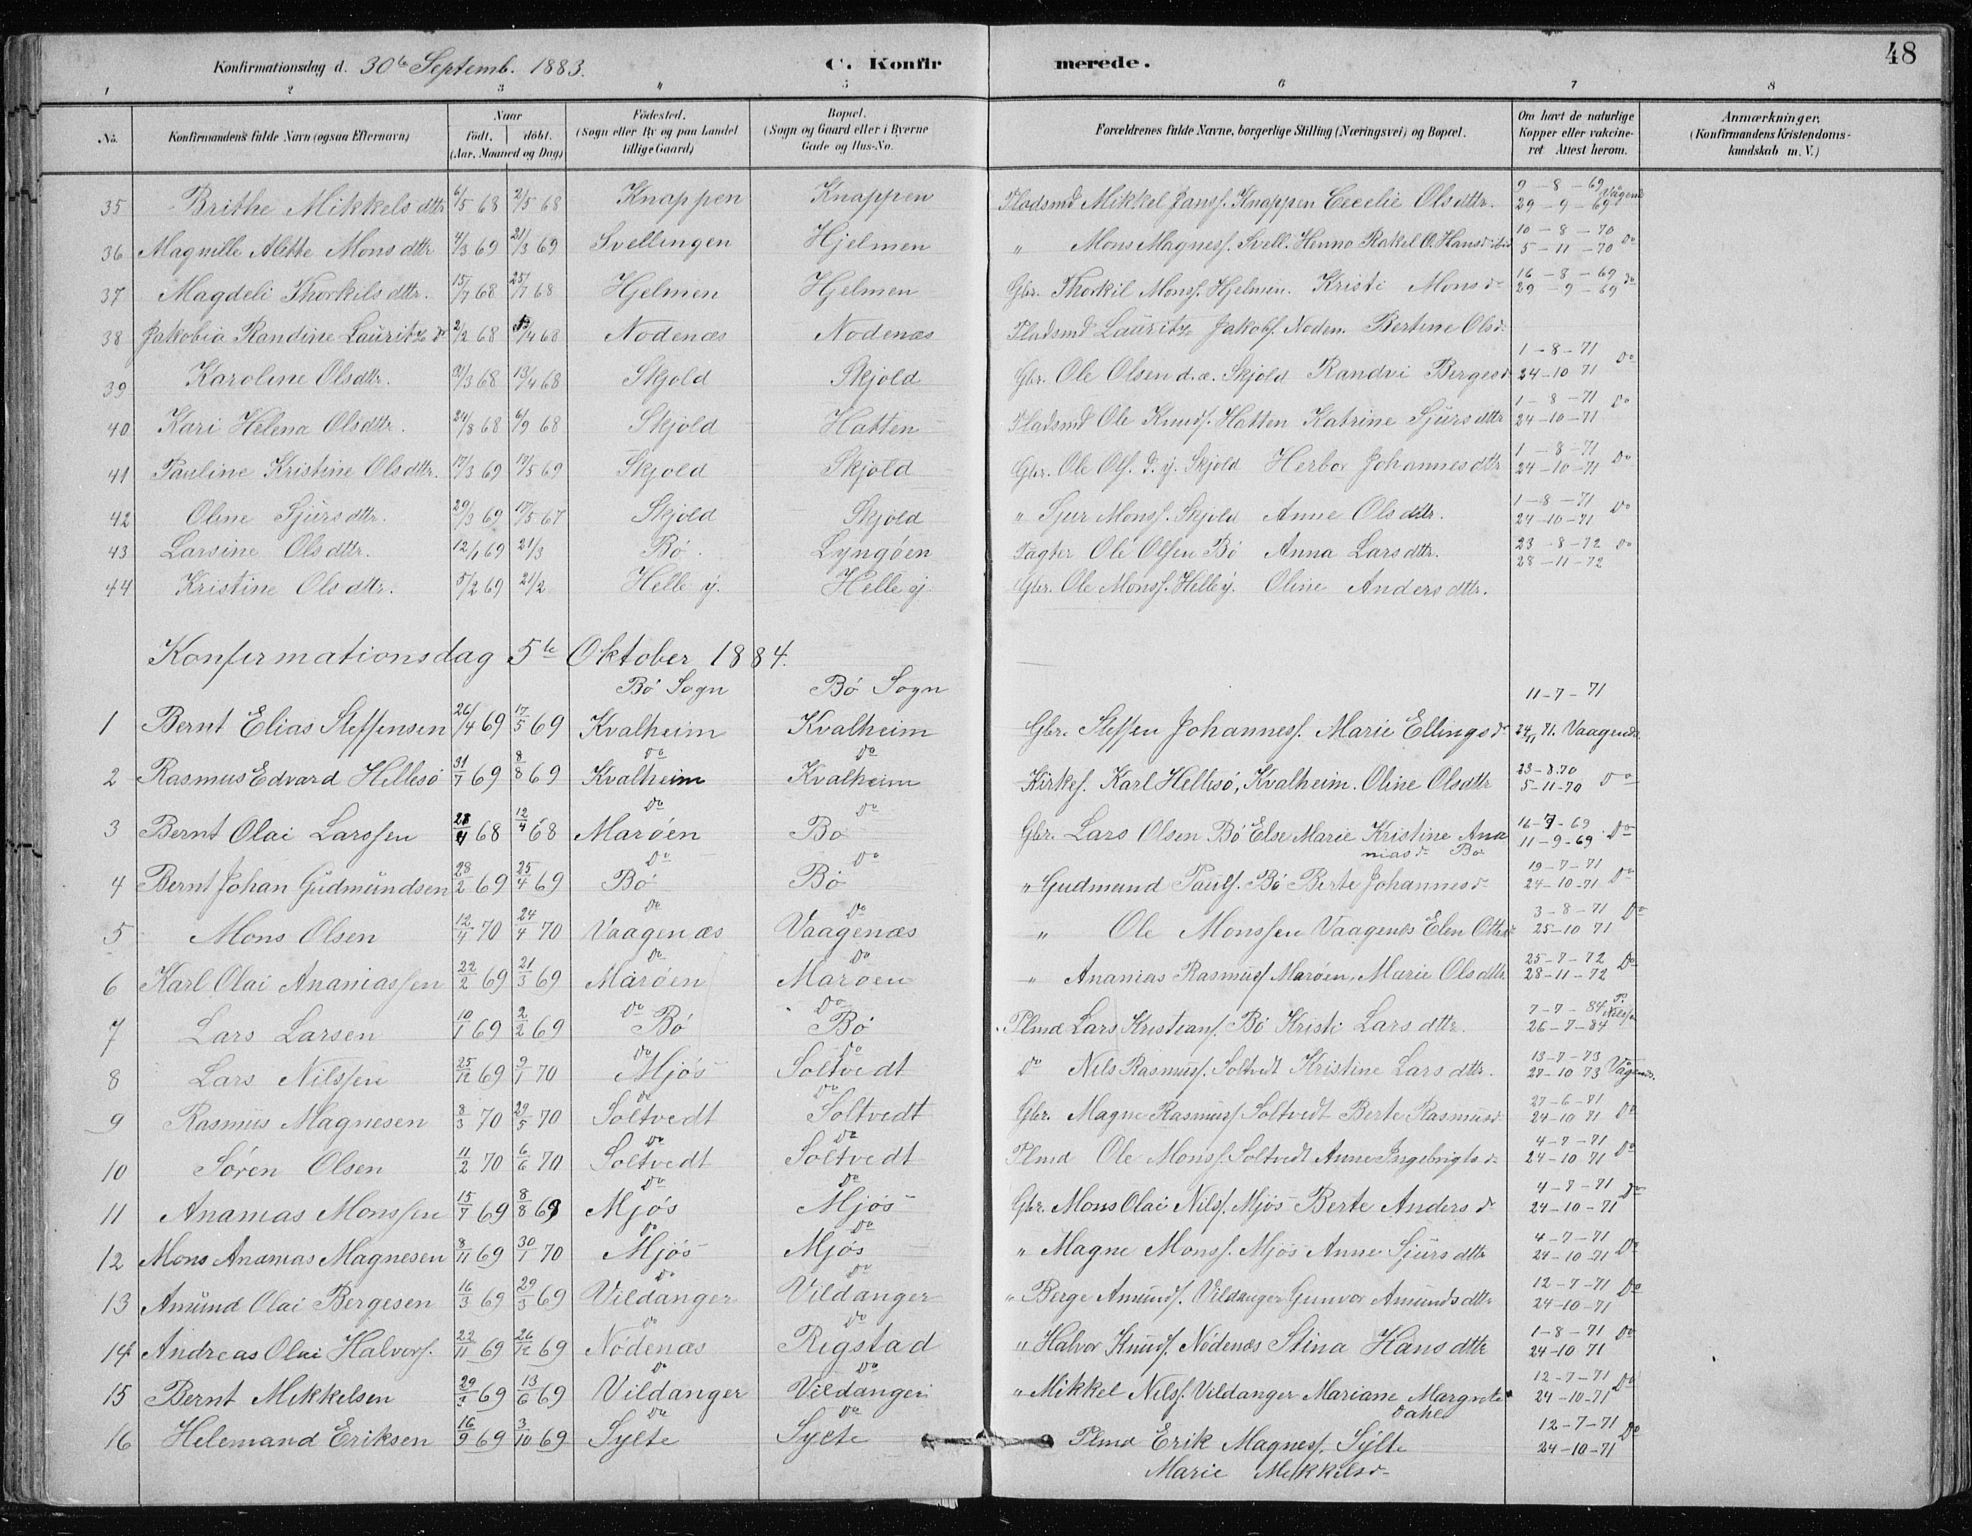 48
Konfirmationsdag d. 30te Septemb. 1883. C. Konfirmerede.
1 2 3 4 5 6 7 8
No. Konfirmandens fulde Navn (ogsaa Efternavn) Naar födt. döbt. (Aar, Maaned og Dag) Födested. (Sogn eller By og paa Landet tillige Gaard) Bopæl. (Sogn og Gaard eller i Byerne Gade og Hus-No. Forældrenes fulde Navne, borgerlige Stilling (Næringsvei) og Bopæl. Om havt de naturlige Kopper eller vakcineret Attest herom. Anmærkninger, (Konfirmandens Kristendomskundskab m. V.)
35 Brithe Mikkels dttr 6/5 68 2/5 68 Knappen Knappen Pladsmd Mikkel Jansf. Knappen Cecelie Olsdttr. 9-8-69 29-9-69 Vågenes
36 Magnille Alethe Mons dttr 4/3 69 21/3 69 Svellingen Hjelmen " Mons Magnesf. Svell. Henno Rakel O. Hansd 10-8-70 5-11-70 Do
37 Magdeli Thorkils dttr. 15/7 68 25/7 68 Hjelmen Hjelmen Gbr. Thorkil Monsf. Hjelmen. Kristi Monsd 16-8-69 29-9-69 do
38 Jakobia Randine Lauritz d 2/2 68 /4 68 Nodenæs Nodenæs Pladsmd Lauritz Jakobf. Noden. Bertine Olsd.
39 Karoline Olsdtr. /3 68 13/4 68 Skjold Skjold Gbr. Ole Olsen d.æ. Skjold Randvi Bergesd 1-8-71 24-10 71 Do
40 Kari Helena Olsdtr. 24/8 68 6/9 68 Skjold Hatten Pladsmd Ole Knudf. Hatten Katrine Sjursdttr 1-8-71 24-10-71 Do
41 Pauline Kristine Olsdttr. 17/3 69 17/5 69 Skjold Skjold Gbr. Ole Olf. d. y. Skjold Herbor Johannesdttr 1-8-71 24-10-71 Do
42 Oline Sjursdttr. 29/3 69 17/5 67 Skjold Skjold " Sjur Monsf. Skjold Anne Olsdttr. 1-8-71 24-10-71 Do
43 Larsine Olsdttr. 12/1 69 21/3 Bö Lyngöen Pagter Ole Olsen Bö Anna Larsdttr. 23-8-72 28-11-72 do
44 Kristine Olsdttr. 5/2 69 21/2 Helle y. Helle y. Gbr. Ole Monsf. Helle y. Oline Andersdttr.
Konfirmationsdag 5te Oktober 1884.
Bö Sogn Bö Sogn
1 Bernt Elias Steffensen 26/4 69 17/5 69 Kvalheim Kvalheim Gbr. Steffen Johannesf. Marie Ellingsd 11-7-71 24/11 71. Vaagenes
2 Rasmus Edvard Hellesö 31/7 69 8/8 69 Do Kvalheim Do Kvalheim Kirkes. Karl Hellisö, Kvalheim. Oline Olsdttr 23-8.70 5-11-70 Do
3 Bernt Olai Larssen 28/4 68 12/4 68 Do Maröen Do Bö Gbr. Lars Olsen Bö Else Marie Kristine Ananiasd Bö 16-7-69 11-9-69 Do
4 Bernt Johan Gudmundsen 28/2 69 25/4 69 Do Bö Do Bö " Gudmund Paulf. Bö Berte Johannesd 19-7-71 24-10-71 Do
5 Mons Olsen 12/4 70 24/4 70 Do Vaagenæs Do Vaagenæs " Ole Monssen Vaagenes Elen Ottesd 3-8-71 25-10 71 Do
6 Karl Olai Ananiassen 22/2 69 21/3 69 Do Maröen Do Maröen " Ananias Rasmusf Maröen, Marie Olsdttr. 25-7-72 28-11-72 Do
7 Lars Larsen 10/1 69 2/2 69 Do Bö Do Bö Plmd Lars Kristiansf. Bö Kristi Larsdttr. 7-7-84 26-7-84 P. Nilsen
8 Lars Nilssen 25/12 69 9/1 70 Do Mjös Soltvedt Do Nils Rasmusf. Soltvedt Kristine Larsdttr. 13-7-73 27-10 73 Vågenes.
9 Rasmus Magnesen 8/3 70 29/5 70 Do Soltvedt Do Soltvedt Gbr. Magne Rasmusf Soltvedt Berte Rasmusd. 27-6-71 24-10 71 Do
10 Sören Olsen 11/2 70 6/6 70 Do Soltvedt Do Soltvedt Plmd Ole Monsf. Soltvedt Anne Ingebrigtsd 4-7-71 24-10 71 Do
11 Ananias Monssen 15/7 69 8/8 69 Do Mjös Do Mjös Gbr. Mons Olai Nilsf. Mjös Berte Andersd. 4-7-71 24-10-71 Do
12 Mons Ananias Magnesen 8/11 69 30/1 70 Do Mjös Do Mjös " Magne Monsf. Mjös Anne Sjursdttr 4-7-71 24-10-71 Do
13 Amund Olai Bergesen 16/3 69 29/3 69 Do Vildanger Do Vildanger " Berge Amundf. Vildanger Gunvor Amundsdttr 12-7-71 24-10-71 Do
14 Andreas Olai Halvorf. 22/11 69 26/12 69 Do Nödenæs Do Rigstad " Halvor Knudf. Nödenæs Stina Hansdttr 1-8-71 24-10 71 Do
15 Bernt Mikkelsen 29/3 69 13/6 69 Do Vildanger Do Vildanger " Mikkel Nilsf. Vildanger Mariane Margrete Dahl 12-7-71 24-10-71 Do
16 Helemand Eriksen 16/9 69 3/10 69 Do Sylte Do Sylte Plmd Erik Magnesf. Sylte 12-7-71 24-10-71 Do
Marie Mekkelsd